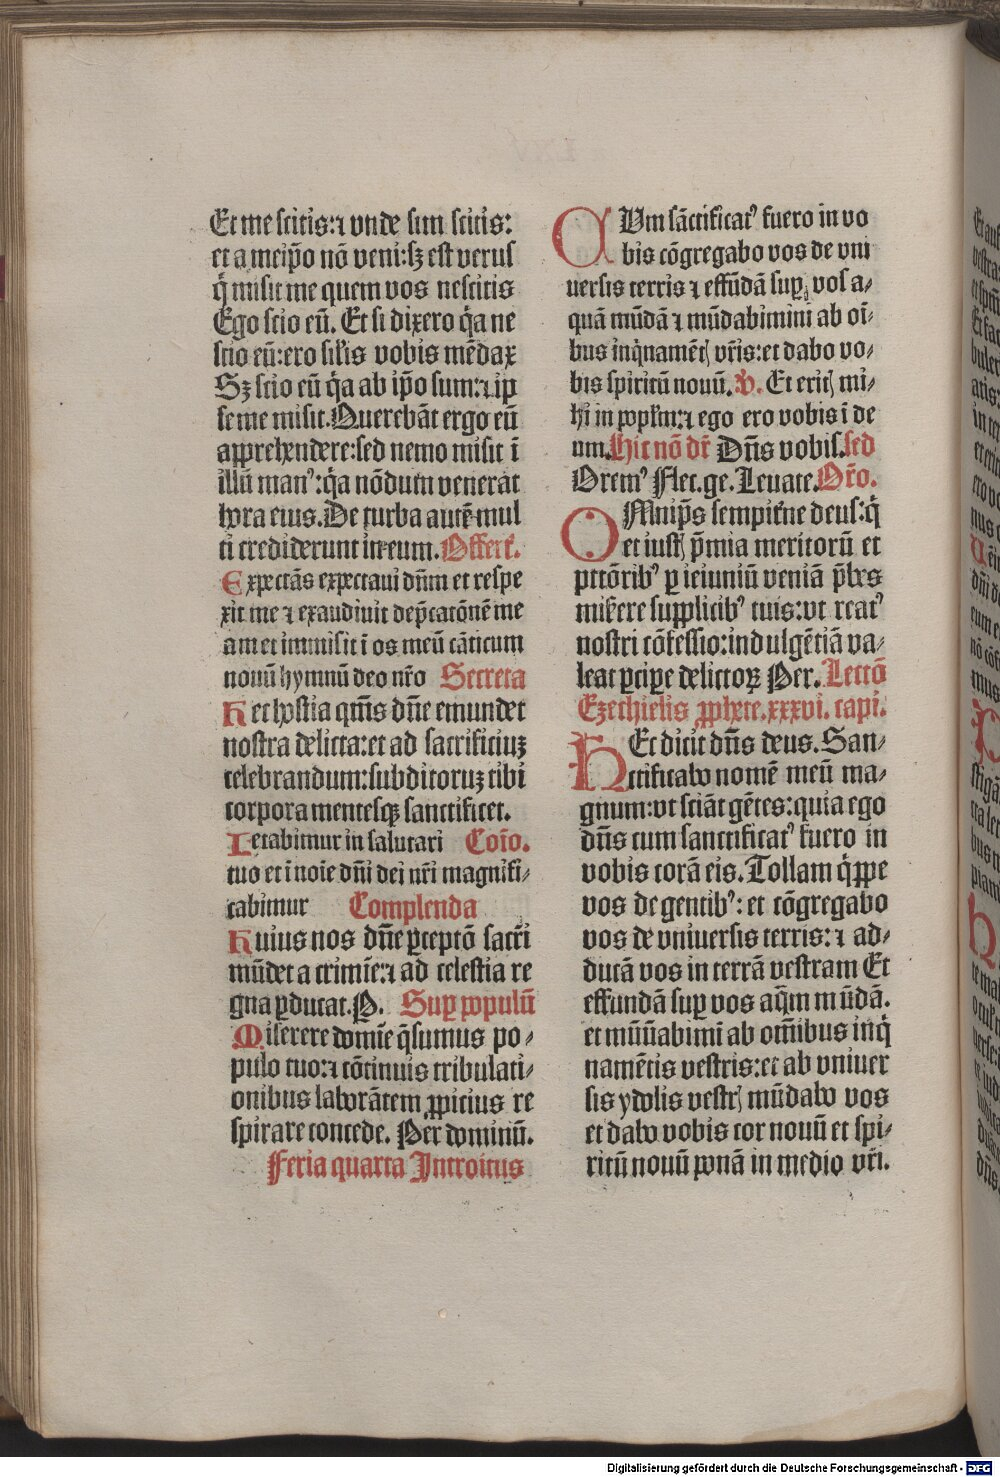 Et me scitis:⁊ vnde sim scitis:
et a meip̄o nō veni:sꝫ est verus
q̇ misit me quem vos nescitis
Ego scio eū. Et si dixero q̇a ne
scio eū:ero siłis vobis mēdax
Sꝫ scio eū q̇a ab ip̄o sum:⁊ ip
se me misit. Querebāt ergo eū
apprehendere:sed nemo misit ī
illū man᾽:q̇a nōdum venerat
hora eius. De turba autē mul
ti crediderunt in eum. Offert̄.
Expectās expectaui dn̄m et respe
xit me ⁊ exaudiuit dep̄catōnē me
am et immisit ī os meū cāticum
nouū hymnū deo nr̄o Secreta
Hec hostia qm̄s dn̄e emundet
nostra delicta:et ad sacrificiuꝫ
celebrandum:subditoruꝫ tibi
corpora mentesqꝫ sanctificet.
Letabimur in salutari Coīo.
tuo et ī noīe dn̄i dei nr̄i magnifi⸗
cabimur Complenda
Huius nos dn̄e ꝑceptō sacr̄i
mūdet a crimīe:⁊ ad celestia re
gna ꝑducat. P. Suꝑ populū
Miserere domīe q̄sumus po⸗
pulo tuo:⁊ cōtinuis tribulati⸗
onibus laborātem ꝓpicius re
spirare concede. Per dominū.
Feria quarta Introitus
CUm sāctificat᾽ fuero in vo
bis cōgregabo vos de vni
uersis terris ⁊ effūdā suꝑ vos a⸗
quā mūdā ⁊ mūdabimini ab oī⸗
bus inq̇namēt) vr̄is:et dabo vo⸗
bis spiritū nouū. V̄. Et erit) mi⸗
hi in popłm:⁊ ego ero vobis ī de
um. Hic nō dr̄ Dn̄s vobis. sed
Orem᾽ Flec. ge. Leuate. Or̄o.
OMnip̄s sempit̄ne deus:q̇
et iust) p̄mia meritorū et
pctōrib᾽ ꝑ ieiuniū veniā p̄bes
mis̄ere supplicib᾽ tuis:vt reat᾽
nostri cōfessio:indulgētiā va⸗
leat ꝑcipe delictoꝝ Per. Lectō
Ezechielis ꝓphete. xxxvi. capi.
HEc dicit dn̄s deus. San⸗
ctificabo nomē meū ma⸗
gnum:vt sciāt gētes:quia ego
dn̄s cum sanctificat᾽ fuero in
vobis corā eis. Tollam q̇ppe
vos de gentib᾽: et cōgregabo
vos de vniuersis terris: ⁊ ad⸗
ducā vos in terrā vestram Et
effundā suꝑ vos aq̄m mūdā.
et mūdabimī ab om̄ibus inq̇
namētis vestris:et ab vniuer
sis ydolis vestr) mūdabo vos
et dabo vobis cor nouū et spi⸗
ritū nouū ponā in medio vr̄i.
Digitalisierung gefördert durch die Deutsche Forschungsgemeinschaft - DFG